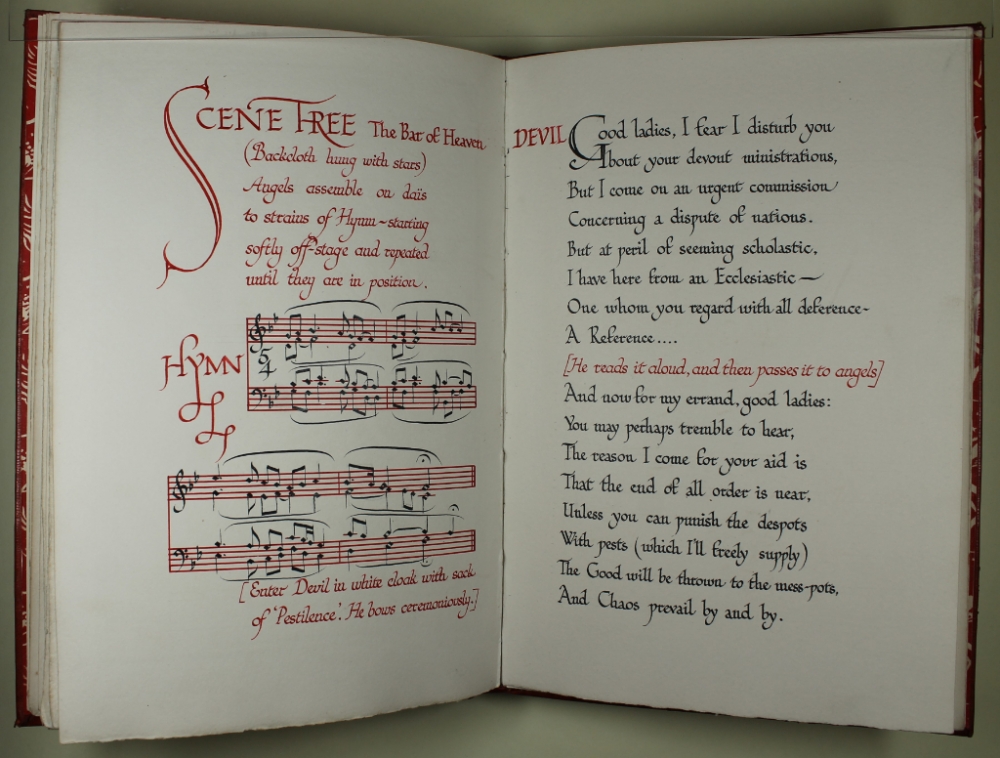 SCENE THREE The Bar of Heaven
(Backcloth hung with stars)
Angels assemble on daïs
to strains of Hymn - starting
softly off-stage and repeated
until they are in position.
HYMN
5
4
[Enter Devil in white cloak with sack
of 'Pestilence'. He bows ceremoniously.]
DEVIL Good ladies, I fear I disturb you
About your devout ministrations,
But I come on an urgent commission
Concerning a dispute of nations.
But at peril of seeming scholastic,
I have here from an Ecclesiastic —
One whom you regard with all deference-
A Reference....
[He reads it aloud, and then passes it to angels]
And now for my errand, good ladies:
You may perhaps tremble to hear,
The reason I come for your aid is
That the end of all order is near,
Unless you can punish the despots
With pests (which I'll freely supply)
The Good will be thrown to the mess-pots,
And Chaos prevail by and by.